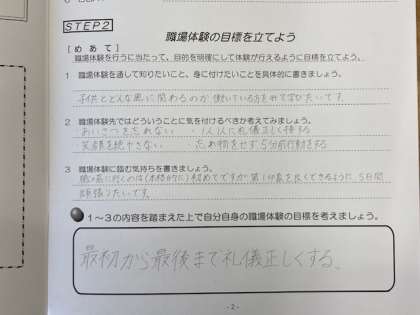 STEP2
職場体験の目標を立てよう
[めあて]
職場体験を行うに当たって、目的を明確にして体験が行えるように目標を立てよう。
1 職場体験を通して知りたいこと、身に付けたいことを具体的に書きましょう。
子供とどんな風に関わるのか働いている方を見て学びたいです。
2 職場体験先ではどういうことに気を付けるべきか考えてみましょう。
・あいさつを忘れない ・1人1人に礼儀正しく接する
・笑顔を絶やさない ・忘れ物をせず5分前行動をする
3 職場体験に臨む気持ちを書きましょう。
に行くのは(本格的に)初めてですが第1印象を良くできるように5日間
頑張りたいです。
1~3の内容を踏まえた上で自分自身の職場体験の目標を考えましょう。
最初から最後まで礼儀正しくする。
-2-